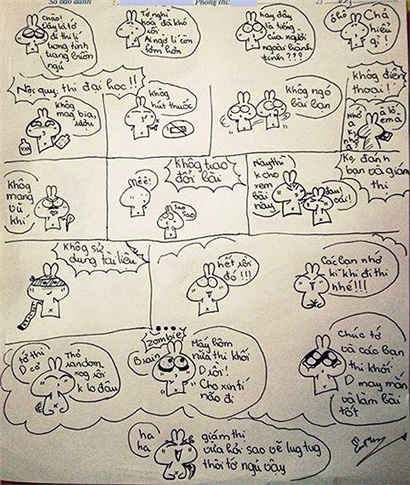 Số báo danh
Phòng thi:
chào!
Đây là tớ
đi thi lí
trong tình
trạng buồn
ngủ
Tớ nghĩ
hóa đã khó
rồi
Ai ngờ lí còn
hơn
hay đây
là tiếng
của người
ngoài hành
tinh???
ôhô
Chả
hiểu
gì!
Nội quy thi đại học!!
không
mang bia,
rượu
không
hút thuốc
không ngó
bài bạn
không điện
thoại!
Nhớ
á lô
em à
không
mang
vũ
khí
mêê!
không trao
đổi bài
sao
sao
Này thì
k cho
xem
bài
này
đau!
oái!
K đánh
bạn và giám
thị
không sử
dụng tài liệu
hết rồi
đó!!!
Các bạn nhớ
kĩ khi đi thi
nhé!!!
tớ thi
D cơ
Thỏ
random
nog rồi
k lo đâu
zombie
Brain
Mấy hôm
nữa thi khối
D rồi!
Cho xin tí
não đi
Chúc tớ
và các bạn
thi khối
D may mắn
và làm bài
tốt
ha
ha
giám thị
vừa hỏi sao vẽ lug tug
thôi tớ ngủ vậy